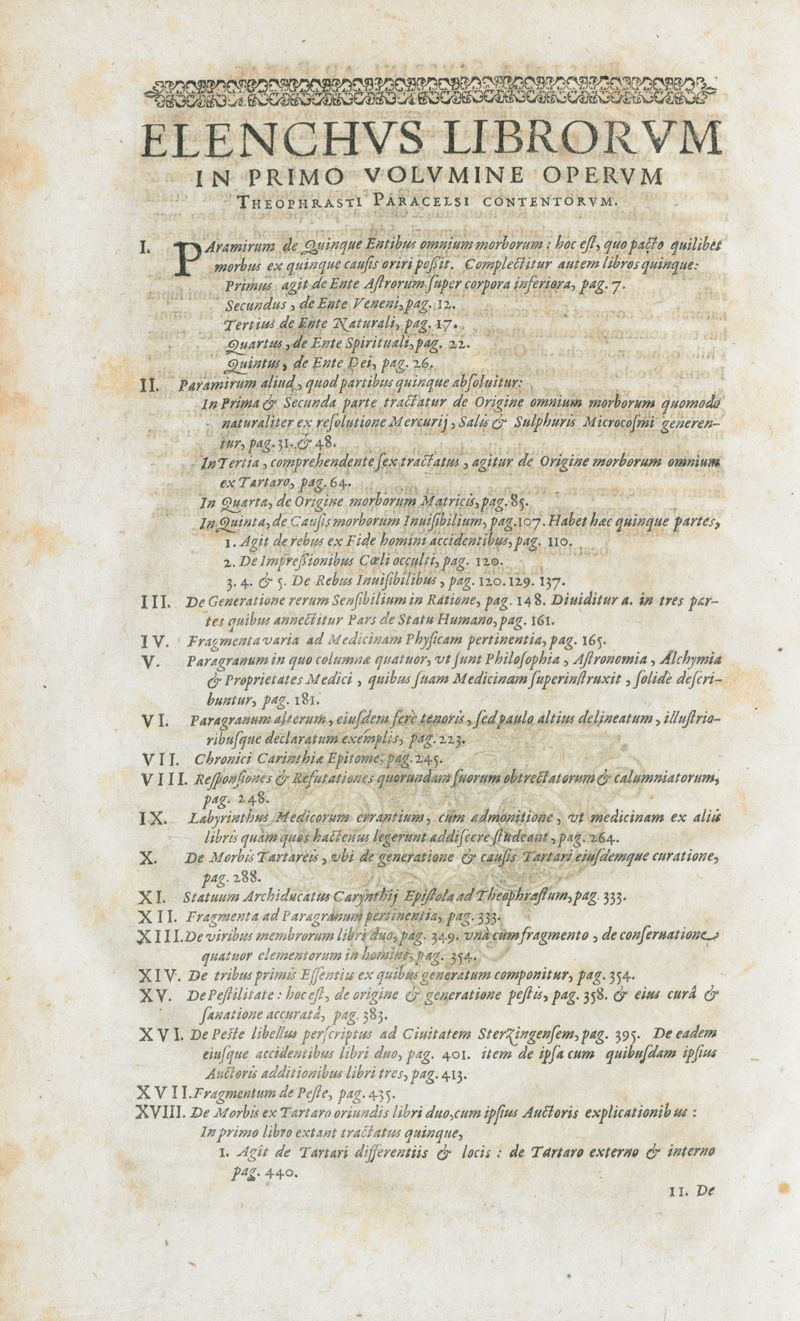 ELENCHVS LIBRORVM
IN PRIMO VOLVMINE OPERVM
THEOPHRASTI PARACELSI CONTENTORVM.
I. PAramirum de Quinque Entibus omnium morborum : hoc eſt, quo pacto quilibet
morbus ex quinque cauſis oriri poſſit. Complectitur autem libros quinque:
Primus agit de Ente Aſtrorum ſuper corpora inferiora, pag. 7.
Secundus , de Ente Veneni, pag. 12.
Tertius de Ente Naturali, pag. 17.
Quartus , de Ente Spirituali, pag. 22.
Quintus , de Ente Dei, pag. 26.
II. Paramirum aliud , quod partibus quinque abſoluitur:
In Prima & Secunda parte tractatur de Origine omnium morborum quomodo
naturaliter ex reſolutione Mercurij , Salis & Sulphuris Microcoſmi generen-
tur, pag. 31. & 48.
In Tertia , comprehendente ſex tractatus , agitur de Origine morborum omnium
ex Tartaro, pag. 64.
In Quarta, de Origine morborum Matricis, pag. 85.
In Quinta, de Cauſis morborum Inuiſibilium, pag. 107. Habet hæc quinque partes,
1. Agit de rebus ex Fide homini accidentibus, pag. 110.
2. De Impreſſionibus Cœli occulti, pag. 120.
3. 4. & 5. De Rebus Inuiſibilibus , pag. 120. 129. 137.
III. De Generatione rerum Senſibilium in Ratione, pag. 148. Diuiditur a. in tres par-
tes quibus annectitur Pars de Statu Humano, pag. 161.
IV. Fragmenta varia ad Medicinam Phyſicam pertinentia, pag. 165.
V. Paragranum in quo columnæ quatuor, vt ſunt Philoſophia , Aſtronomia , Alchymia
& Proprietates Medici , quibus ſuam Medicinam ſuperinſtruxit , ſolidè deſcri-
buntur, pag. 181.
VI. Paragranum alterum , eiuſdem ferè tenoris , ſed paulo altius delineatum , illuſtrio-
ribuſque declaratum exemplis, pag. 223.
VII. Chronici Carinthiæ Epitome, pag. 245.
VIII. Reſponſiones & Refutationes quorundam ſuorum obtrectatorum & calumniatorum,
pag. 248.
IX. Labyrinthus Medicorum errantium , cum admonitione , vt medicinam ex aliis
libris quàm quos hactenus legerunt addiſcere ſtudeant , pag. 264.
X. De Morbis Tartareis , vbi de generatione & cauſis Tartari eiuſdemque curatione,
pag. 288.
XI. Statuum Archiducatus Carynthij Epiſtola ad Theophraſtum, pag. 333.
XII. Fragmenta ad Paragranum pertinentia, pag. 333.
XIII. De viribus membrorum libri duo, pag. 349. vnà cum fragmento , de conſeruatione
quatuor elementorum in homine, pag. 354.
XIV. De tribus primis Eſſentiis ex quibus generatum componitur, pag. 354.
XV. De Peſtilitate : hoc eſt, de origine & generatione peſtis, pag. 358. & eius curâ &
ſanatione accuratâ, pag. 383.
XVI. De Peſte libellus perſcriptus ad Ciuitatem Sterzingenſem, pag. 395. De eadem
eiuſque accidentibus libri duo, pag. 401. item de ipſa cum quibuſdam ipſius
Auctoris additionibus libri tres, pag. 413.
XVII. Fragmentum de Peſte, pag. 435.
XVIII. De Morbis ex Tartaro oriundis libri duo, cum ipſius Auctoris explicationibus :
In primo libro extant tractatus quinque,
1. Agit de Tartari differentiis & locis : de Tartaro externo & interno
pag. 440.
II. De